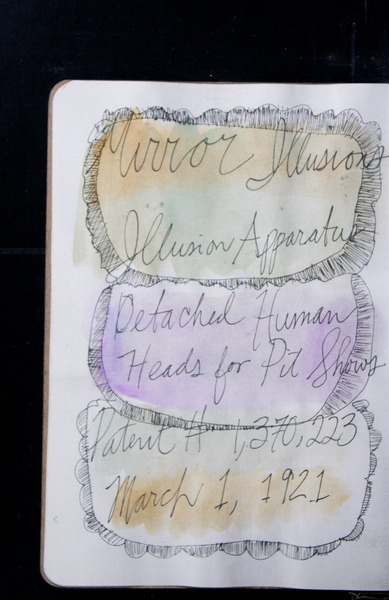 Mirror Illusions
Illusion Apparatus
Detached Human
Heads for Pit Shows
Patent # 1,370,223
March 1, 1921